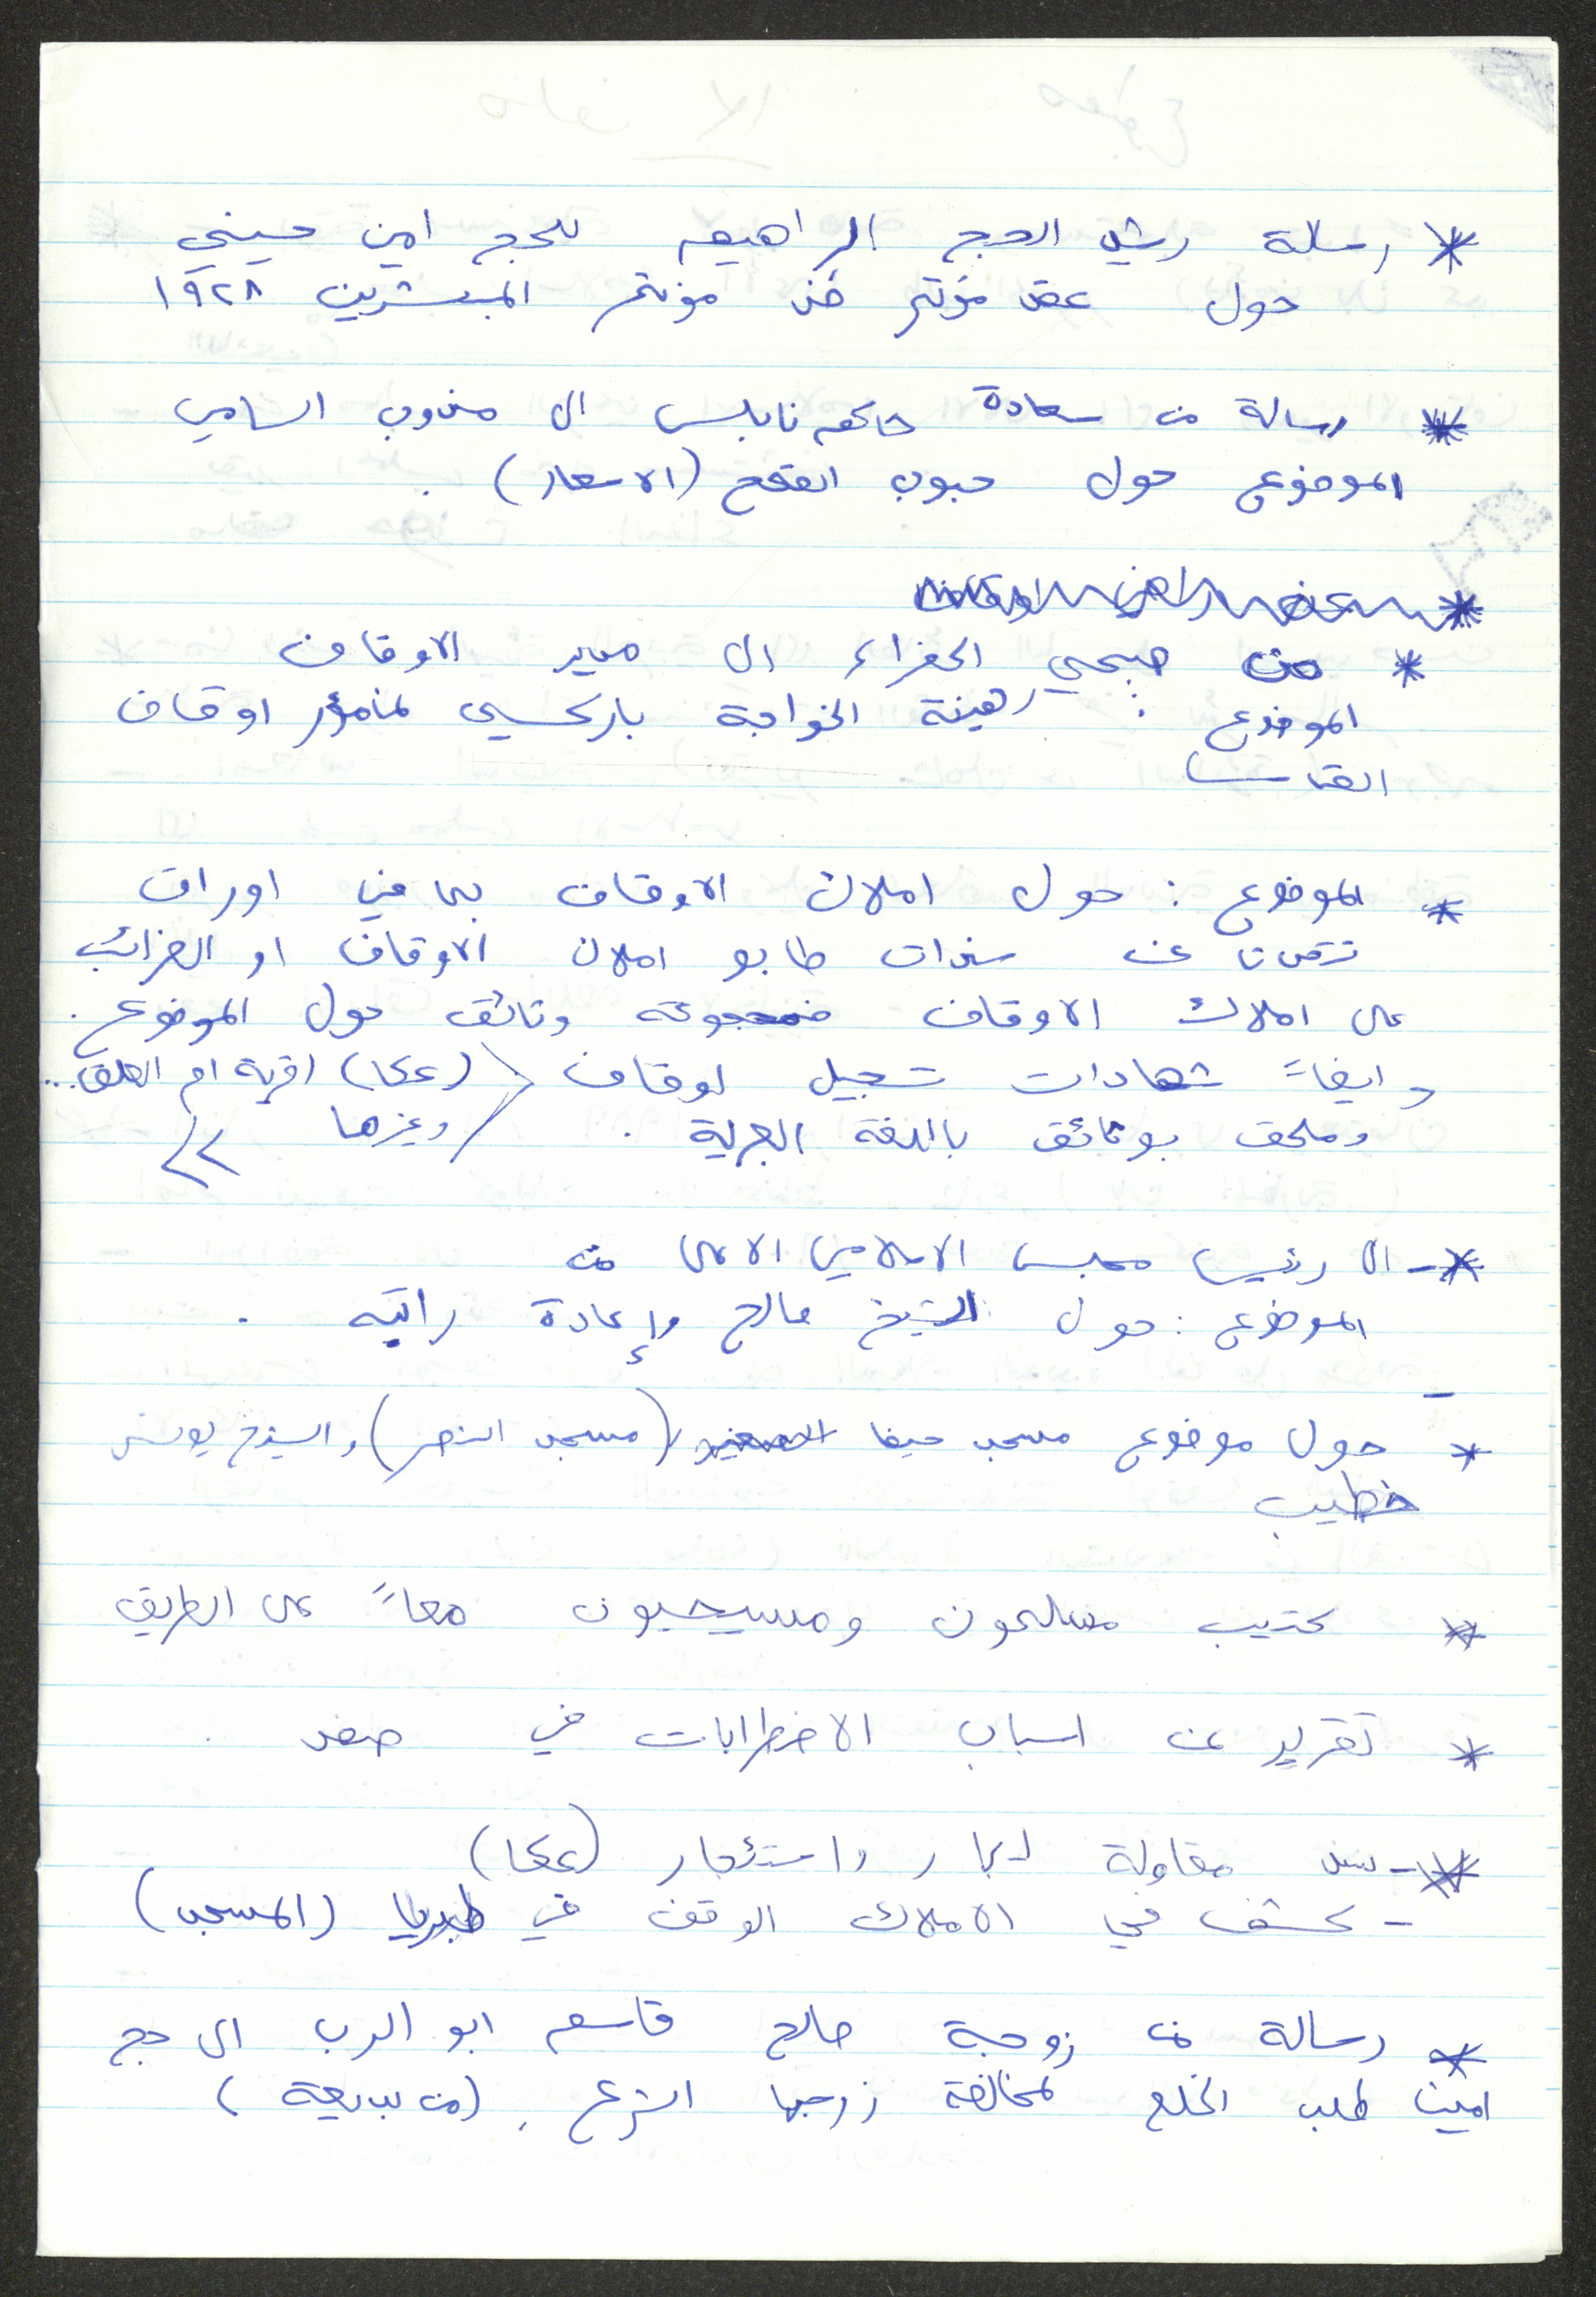 * رسالة رشيد الحج ابراهيم للحج امين حسيني
حول عقد مؤتمر ضد مؤتمر المبشرين ١٩٢٨
* رسالة من سعادة حاكم نابلس الى مندوب السامي
الموضوع حول حبوب القمح (الاسعار) .
* من صبحي الخضراء الى مدير الاوقاف
الموضوع : رهينة الخواجة باركسي لمأمور اوقاف
القدس
* الموضوع : حول املاك الاوقاف بما في اوراق
عن سندات طابو املاك الاوقاف او الضرائب
على املاك الاوقاف مجموعة وثائق حول الموضوع .
وايضاً شهادات تسجيل اوقاف (عكا) اقرية ام العلق...
وملحق بوثائق باللغة العبرية . وغيرها
*- الى رئيس مجلس الاسلامي الاعلى من
الموضوع : حول الشيخ صالح وإعادة راتبه .
-
* حول موضوع مسجد حيفا الصغير (مسجد النصر) والشيخ يونس
خطيب
* كتيب مسلمون ومسيحيون معاً على الطريق
* تقرير عن اسباب الاضطرابات في صفد .
*- سند مقاولة ايجار واستئجار (عكا)
- كشف في الاملاك الوقف في طبريا (المسجد)
* رسالة من زوجة صالح قاسم ابو الرب الى حج
امين طلب الخلع لمخالفة زوجها الشرع . (من بديعة)